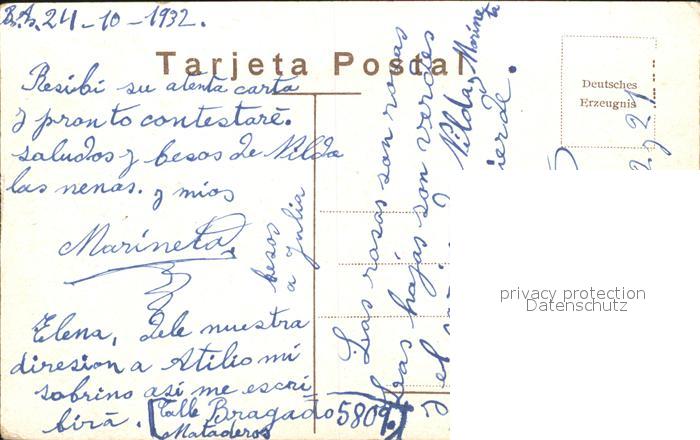 Bs. As. 24-10-1932.
Tarjeta Postal
Resibi su atenta carta
y pronto contestaré.
saludos y besos de Nilda
las nenas. y mios
Marineta.
besos
a Julia
Elena, Dele nuestra
diresion a Atilio mi
sobrino asi me escri
birá. (Calle Bragado 5809.)
Mataderos
Las rosas son rosas
las hojas son verdes
y el
Nilda y Marine
ta
ierde.
Deutsches
Erzeugnis
privacy protection
Datenschutz